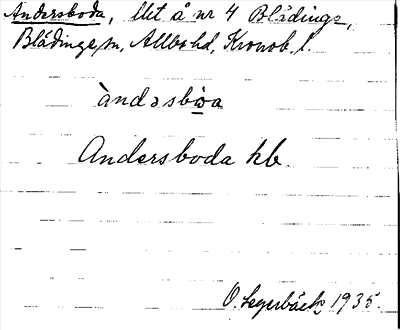 Andersboda, llet å nr 4 Blädinge,
Blädinge sn, Allbo hd, Kronob. l.
àndəsbωa
Andersboda hb.
O. Legerbäck 1935.